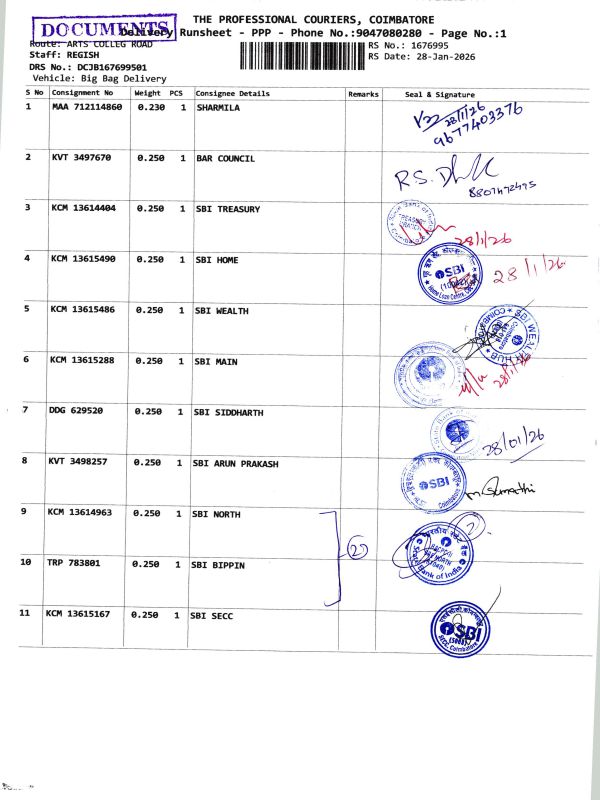 THE PROFESSIONAL COURIERS, COIMBATORE
DOCUMENTS
Delivery Runsheet - PPP - Phone No.:9047080280 - Page No.:1
Route: ARTS COLLEG ROAD
RS No.: 1676995
Staff: REGISH
RS Date: 28-Jan-2026
DRS No.: DCJB167699501
Vehicle: Big Bag Delivery
S No Consignment No Weight PCS Consignee Details Remarks Seal & Signature
1 MAA 712114860 0.230 1 SHARMILA
28/1/26
9677403376
2 KVT 3497670 0.250 1 BAR COUNCIL
R.S.
8807472495
3 KCM 13614404 0.250 1 SBI TREASURY
TREASURY
28/1/26
4 KCM 13615490 0.250 1 SBI HOME
SBI
Home Loan Centre
28/1/26
5 KCM 13615486 0.250 1 SBI WEALTH
SBI WEALTH HUB
COIMBATORE
6 KCM 13615288 0.250 1 SBI MAIN
28/1/26
7 DDG 629520 0.250 1 SBI SIDDHARTH
28/01/26
8 KVT 3498257 0.250 1 SBI ARUN PRAKASH
SBI
Coimbatore
m. Sumathi
9 KCM 13614963 0.250 1 SBI NORTH
2
भारतीय स्टेट बैंक
State Bank of India
10 TRP 783801 0.250 1 SBI BIPPIN
11 KCM 13615167 0.250 1 SBI SECC
SBI
SECC, Coimbatore